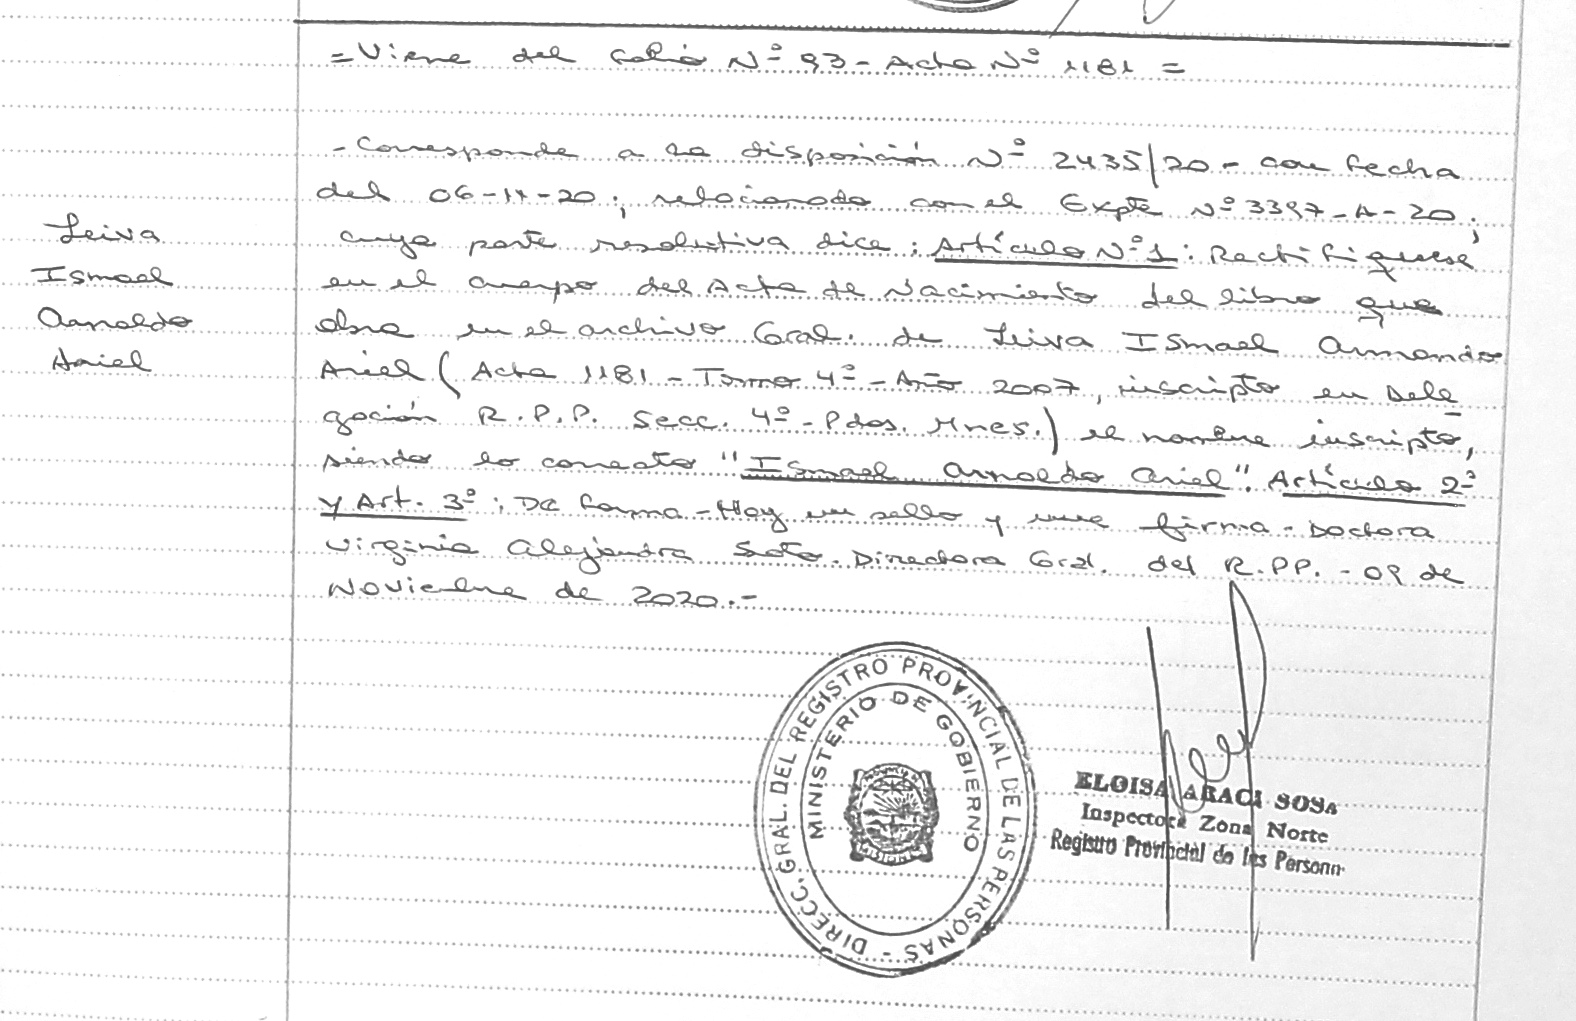 = Viene del folio Nº 93 - Acta Nº 1181 =
- Corresponde a la disposición Nº 2435/20 - con fecha
del 06-11-20; relacionado con el Expte Nº 3397-A-20;
cuya parte resolutiva dice: Artículo Nº 1: Rectifiquese
en el cuerpo del Acta de Nacimiento del libro que
obra en el archivo Gral. de Leiva Ismael Armando
Ariel (Acta 1181 - Tomo 4º - Año 2007, inscripto en Dele
gación R.P.P. Secc. 4º - Pdas. Mnes.) el nombre inscripto,
siendo lo correcto "Ismael Arnoldo Ariel". Artículo 2º
y Art. 3º: De forma - Hay un sello y una firma - Doctora
Virginia Alejandra Soto. Directora Gral. del R.PP. - 09 de
Noviembre de 2020.-
Leiva
Ismael
Arnoldo
Ariel
DIRECC. GRAL. DEL REGISTRO PROVINCIAL DE LAS PERSONAS -
MINISTERIO DE GOBIERNO
MISIONES
ELOISA ARACI SOSA
Inspectora Zona Norte
Registro Provincial de las Person